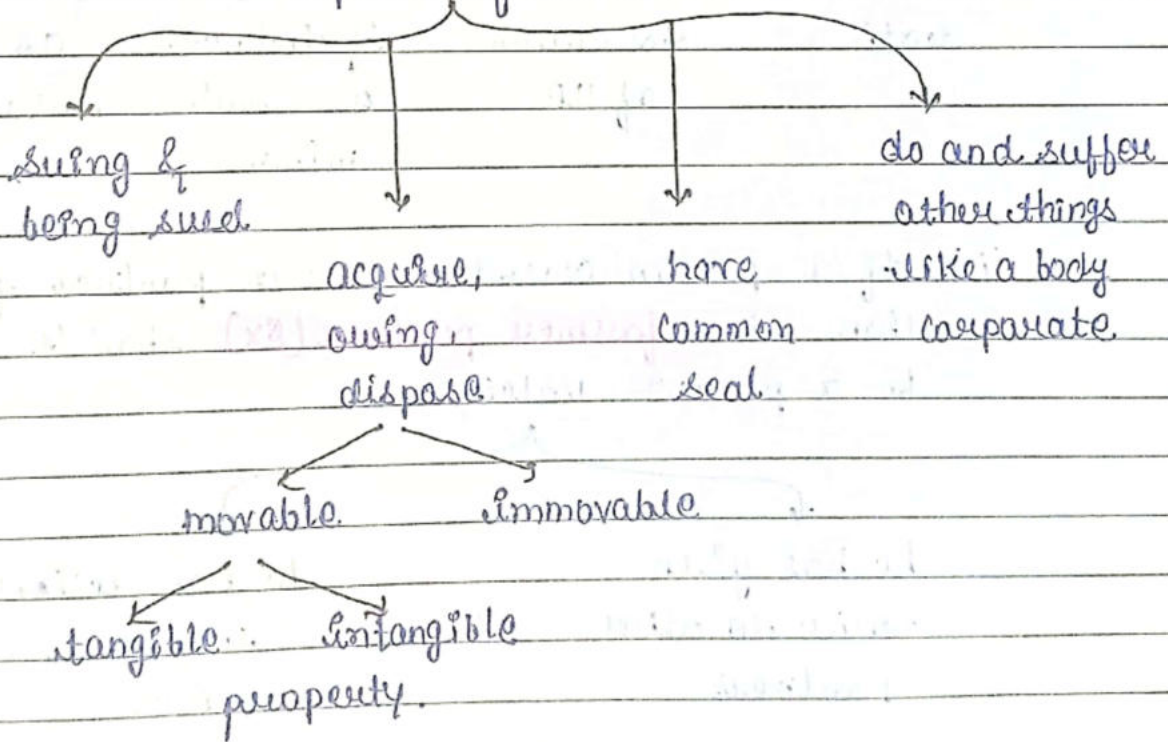 suing &
being sued
acquire,
owing,
dispose
have
common
seal
do and suffer
other things
like a body
corporate.
movable
immovable
tangible
intangible
property.